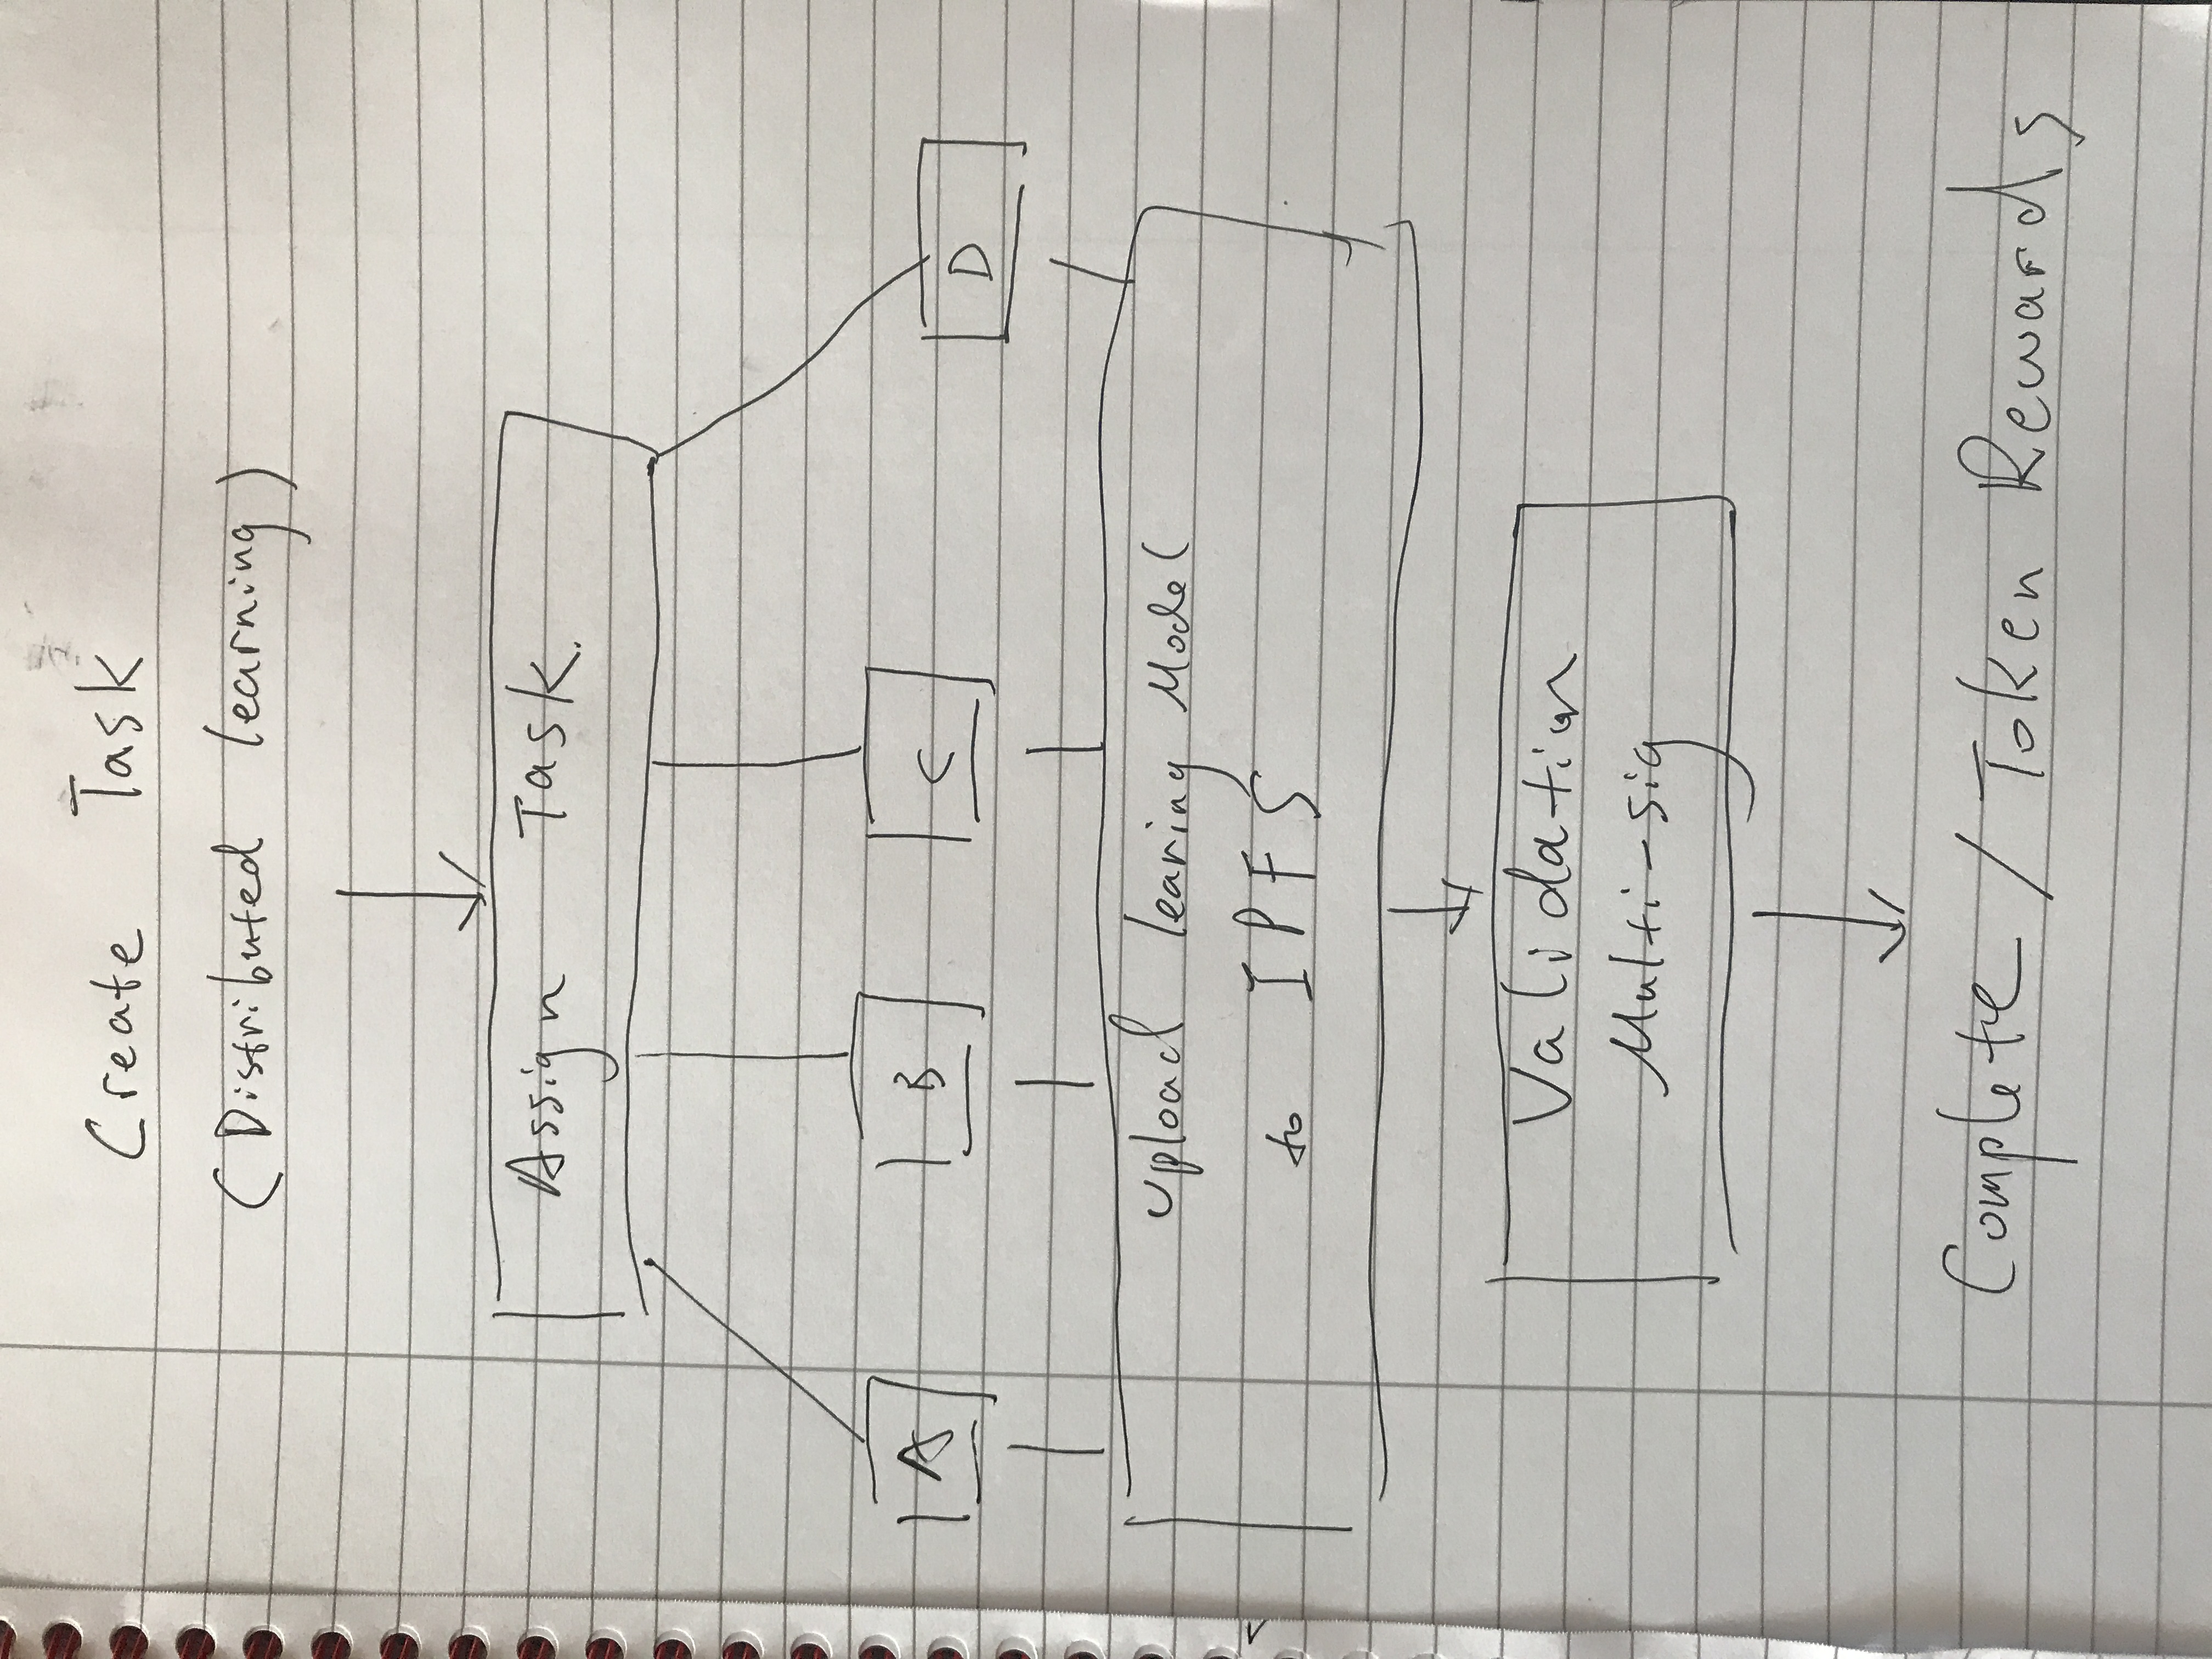 Create Task
(Distributed learning)
Assign Task.
A B C D
Upload learing Model
to IPFS
Validation
Multi-sig
Complete / Token Rewards